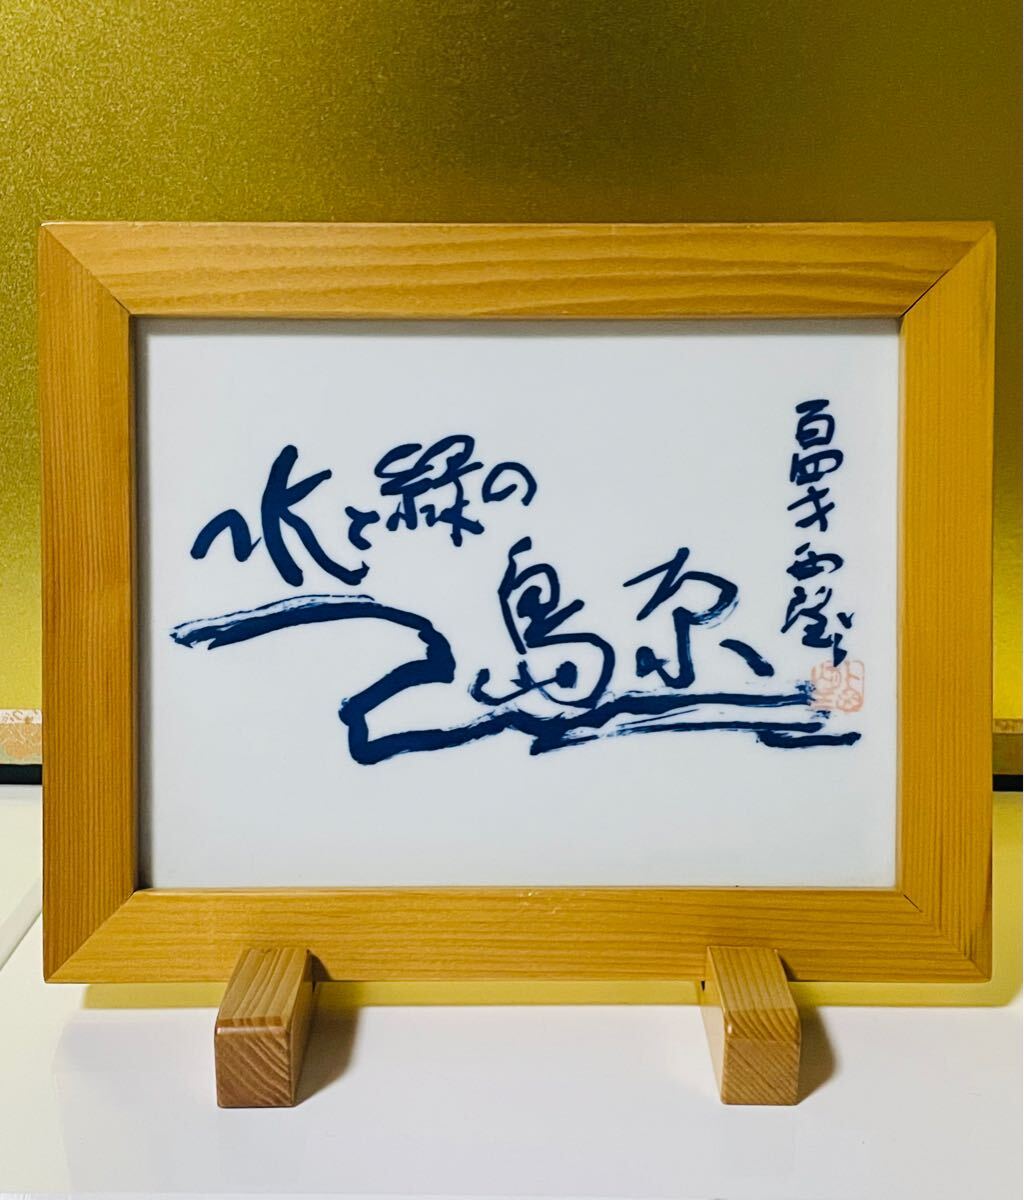 水と緑の
島原
百四才 西望